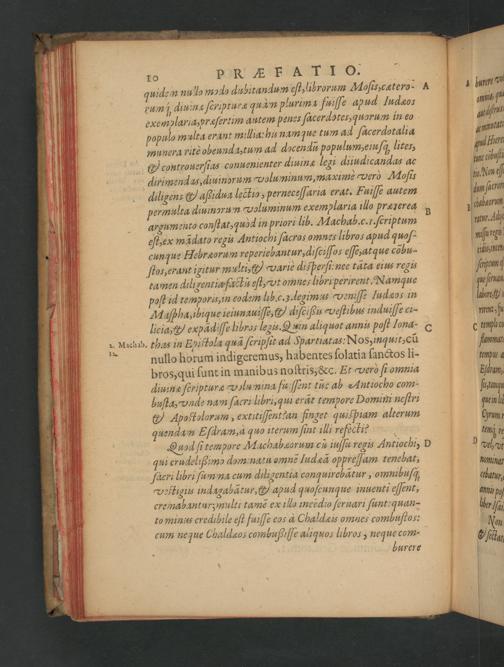 10 PRÆFATIO.
quidem nullo modo dubitandum est, librorum Mosis, cætero- A
rumq́; diuinæ scripturæ quàm plurima fuisse apud Iudæos
exemplaria, præsertim autem penes sacerdotes, quorum in eo
populo multa erant millia: hi namque tum ad sacerdotalia
munera ritè obeunda, tum ad docendū populum, eiusq́; lites,
& controuersias conuenienter diuinæ legi diiudicandas ac
dirimendas, diuinorum voluminum, maximè verò Mosis
diligens & assidua lectio, pernecessaria erat. Fuisse autem
permulta diuinorum voluminum exemplaria illo præterea B
argumento constat, quòd in priori lib. Machab. c. 1. scriptum
est, ex mādato regis Antiochi sacros omnes libros apud quos-
cunque Hebræorum reperiebantur, discissos esse, atque cōbu-
stos, erant igitur multi, & variè dispersi: nec tāta eius regis
tamen diligentia factū est, vt omnes libri perirent. Namque
post id temporis, in eodem lib. c. 3. legimus venisse Iudæos in
Maspha, ibique ieiunauisse, & discissis vestibus induisse ci-
licia, & expādisse libros legis. Quin aliquot annis post Iona- C
2. Machab. thas in Epistola quā scripsit ad Spartiatas: Nos, inquit, cū
12. nullo horum indigeremus, habentes solatia sanctos li-
bros, qui sunt in manibus nostris, &c. Et verò si omnia
diuinæ scripturæ volumina fuissent tūc ab Antiocho com-
busta, vnde nam sacri libri, qui erāt tempore Domini nostri
& Apostolorum, extitissent? an finget quispiam alterum
quendam Esdram, a quo iterum sint illi refecti?
Quod si tempore Machabæorum cū iussu regis Antiochi, D
qui crudelissimo dominatu omnē Iudæā oppressam tenebat,
sacri libri summa cum diligentia conquirebātur, omnibusq́;
vestigiis indagabātur, & apud quoscunque inuenti essent,
cremabantur; multi tamē ex illo incēdio seruari sunt: quan-
to minus credibile est fuisse eos à Chaldæis omnes combustos:
cum neque Chaldæos combussisse aliquos libros, neque com-
burere